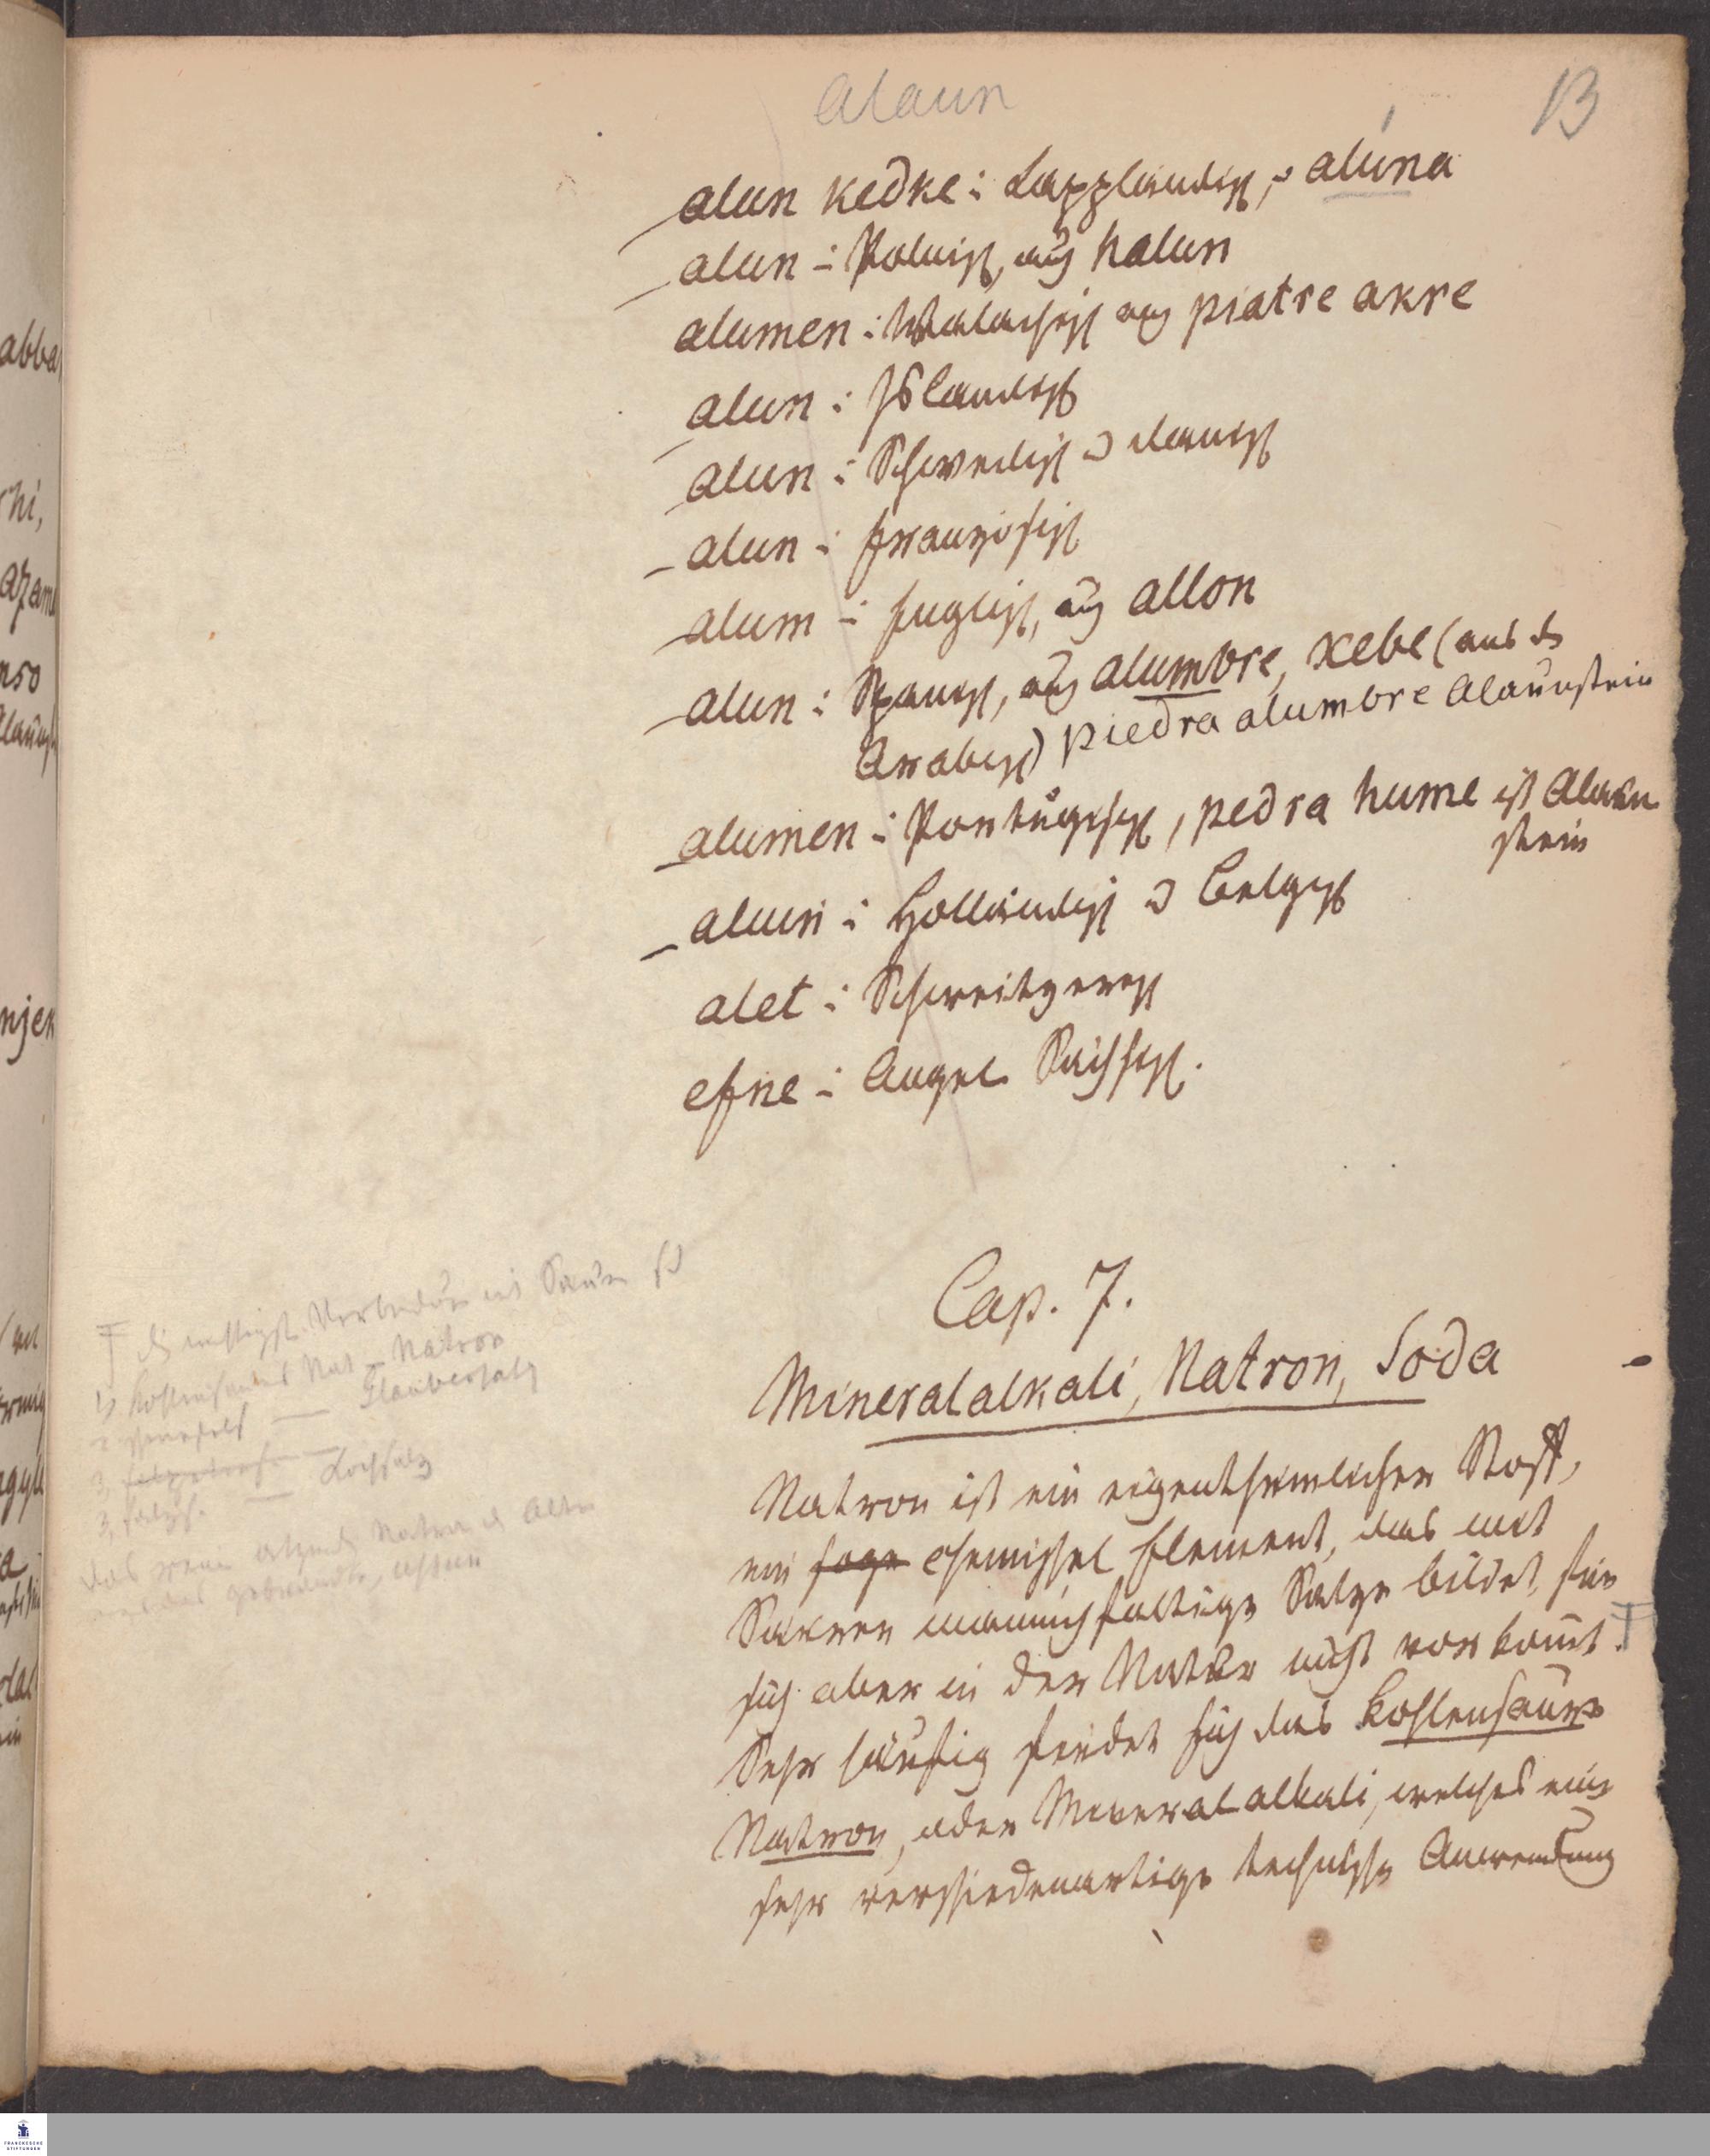 Alaun
13
alun kedke: Lappländisch, aluna
alun: Polnisch, auch halun
alumen: Walachisch auch piatre akre
alun: Isländisch
alun: Schwedisch u dänisch
alun: französisch
alum: Englisch, auch allon
alun: Spanisch, auch alumbre, xebe (aus d
Arabisch) piedra alumbre Alaunstein
alumen: Portugisisch, pedra hume ist Alaun
stein
aluin: Holländisch u Belgisch
alet: Schweitzerisch
efne: Angel Sächsisch.
Cap. 7.
Mineralalkali, Natron, Soda
Natron ist ein eigenthümlicher Stoff,
ein chemisches Element, das mit
Säuren mannichfaltige Salze bildet, für
sich aber in der Natur nicht vorkomt.
Sehr häufig findet sich das kohlensaure
Natron, oder Mineralalkali, welches eine
sehr verschiedenartige technische Anwendung
Verbindun mit Säuren
1, kohlensaures Nat – Natron
2 schwefels — Glaubersalz
3, salzs. — Kochsalz
das Natron
abba
hi,
nso
njek
FRANCKESCHE
STIFTUNGEN